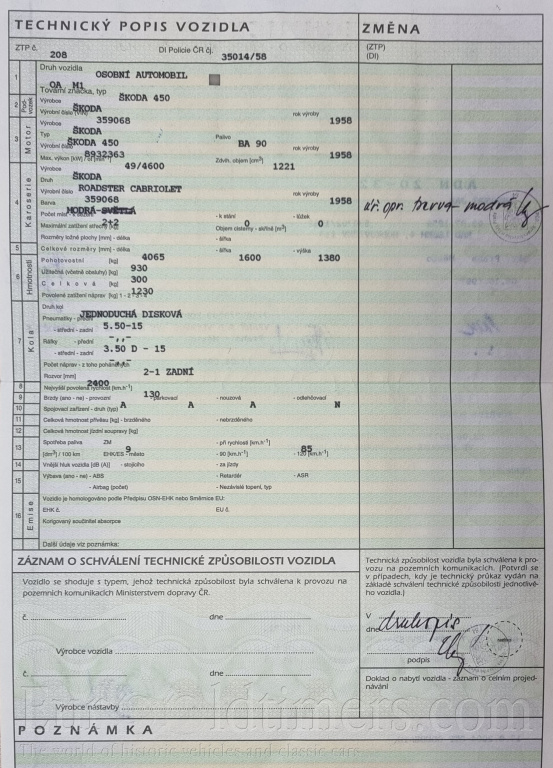 TECHNICKÝ POPIS VOZIDLA
ZMĚNA
ZTP č. 208 DI Policie ČR čj. 35014/58
(ZTP)
(DI)
1 Druh vozidla OSOBNÍ AUTOMOBIL
OA M1
Tovární značka, typ ŠKODA 450
2 Podvozek Výrobce ŠKODA
Výrobní číslo (VIN) 359068 rok výroby 1958
3 Motor Výrobce ŠKODA
Typ ŠKODA 450 Palivo BA 90
Výrobní číslo 8932363 rok výroby 1958
Max. výkon [kW] / ot [min⁻¹] 49/4600 Zdvih. objem [cm³] 1221
4 Karoserie Výrobce ŠKODA
Druh ROADSTER CABRIOLET
Výrobní číslo 359068 rok výroby 1958
Barva MODRÁ-SVĚTLÁ
úř. opr. barva - modrá
Počet míst - k sezení 2+2 - k stání 0 - lůžek 0
Maximální zatížení střechy [kg] Objem cisterny - skříně [m³]
Rozměry ložné plochy [mm] - délka - šířka
5 Celkové rozměry [mm] - délka 4065 - šířka 1600 - výška 1380
6 Hmotnosti Pohotovostní [kg] 930
Užitečná (včetně obsluhy) [kg] 300
Celková [kg] 1230
Povolené zatížení náprav [kg]
7 Kola Druh kol JEDNODUCHÁ DISKOVÁ
Pneumatiky - přední 5.50-15
- střední - zadní -,,-
Ráfky - přední 3.50 D - 15
- střední - zadní -,,-
Počet náprav - z toho poháněných 2-1 ZADNÍ
Rozvor [mm] 2400
8 Nejvyšší povolená rychlost [km.h⁻¹] 130
9 Brzdy (ano - ne) - provozní A - parkovací A - nouzová A - odlehčovací N
10 Spojovací zařízení - druh (typ)
11 Celková hmotnost přívěsu [kg] - brzděného - nebrzděného
12 Celková hmotnost jízdní soupravy [kg]
13 Spotřeba paliva ZM 9 - při rychlosti [km.h⁻¹] 85
[dm³] / 100 km EHK/ES - město - 90 [km.h⁻¹] - 120 [km.h⁻¹]
14 Vnější hluk vozidla [dB (A)] - stojícího - za jízdy
15 Výbava (ano - ne) - ABS - Retardér - ASR
- Airbag (počet) - Nezávislé topení, typ
16 Emise Vozidlo je homologováno podle Předpisu OSN-EHK nebo Směrnice EU:
EHK č. EU č.
Korigovaný součinitel absorpce
Další údaje viz poznámka:
ZÁZNAM O SCHVÁLENÍ TECHNICKÉ ZPŮSOBILOSTI VOZIDLA
Vozidlo se shoduje s typem, jehož technická způsobilost byla schválena k provozu na
pozemních komunikacích Ministerstvem dopravy ČR.
č. dne
Výrobce vozidla
č. dne
Výrobce nástavby
Technická způsobilost vozidla byla schválena k provozu
na pozemních komunikacích. (Potvrdí se
v případech, kdy je technický průkaz vydán na
základě schválení technické způsobilosti jednotlivého
vozidla.)
V
dne druhopis
podpis
Doklad o nabytí vozidla - záznam o celním projednávání
POZNÁMKA
The world of historic vehicles and classic cars